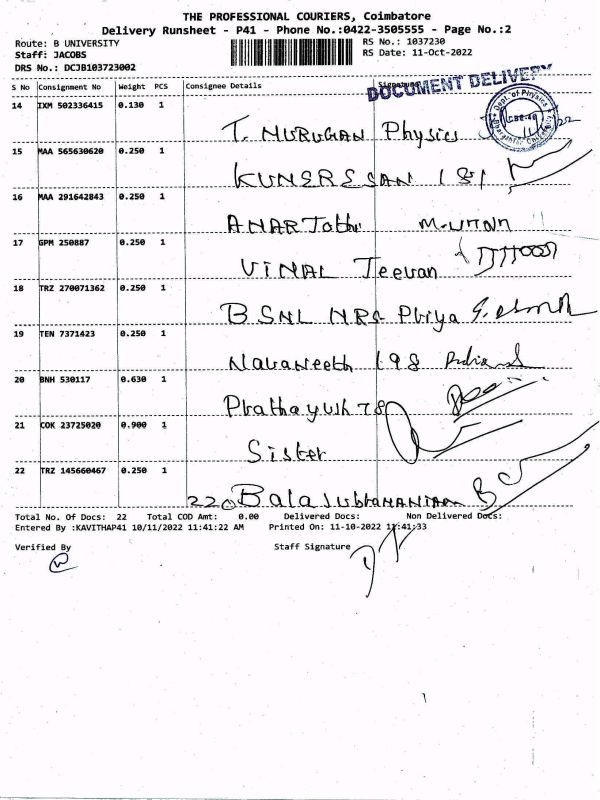 THE PROFESSIONAL COURIERS, Coimbatore
Delivery Runsheet - P41 - Phone No.:0422-3505555 - Page No.:2
Route: B UNIVERSITY
RS No.: 1037230
Staff: JACOBS
RS Date: 11-Oct-2022
DRS No.: DCJB103723002
DOCUMENT DELIVERY
S No Consignment No Weight PCS Consignee Details Signature
14 IXM 502336415 0.130 1
T. MURUGAN Physics
15 MAA 565630620 0.250 1
KUMERESAN 181
16 MAA 291642843 0.250 1
17 GPM 250887 0.250 1
VIMAL Jeevan
18 TRZ 270071362 0.250 1
BSNL NRS Priya
19 TEN 7371423 0.250 1
Navaneeth 198
20 BNH 530117 0.630 1
Prathayush 78
21 COK 23725020 0.900 1
Sister
22 TRZ 145660467 0.250 1
220 Balasubramaniam
Total No. Of Docs: 22 Total COD Amt: 0.00 Delivered Docs: Non Delivered Docs:
Entered By :KAVITHAP41 10/11/2022 11:41:22 AM Printed On: 11-10-2022 11:41:33
Verified By Staff Signature